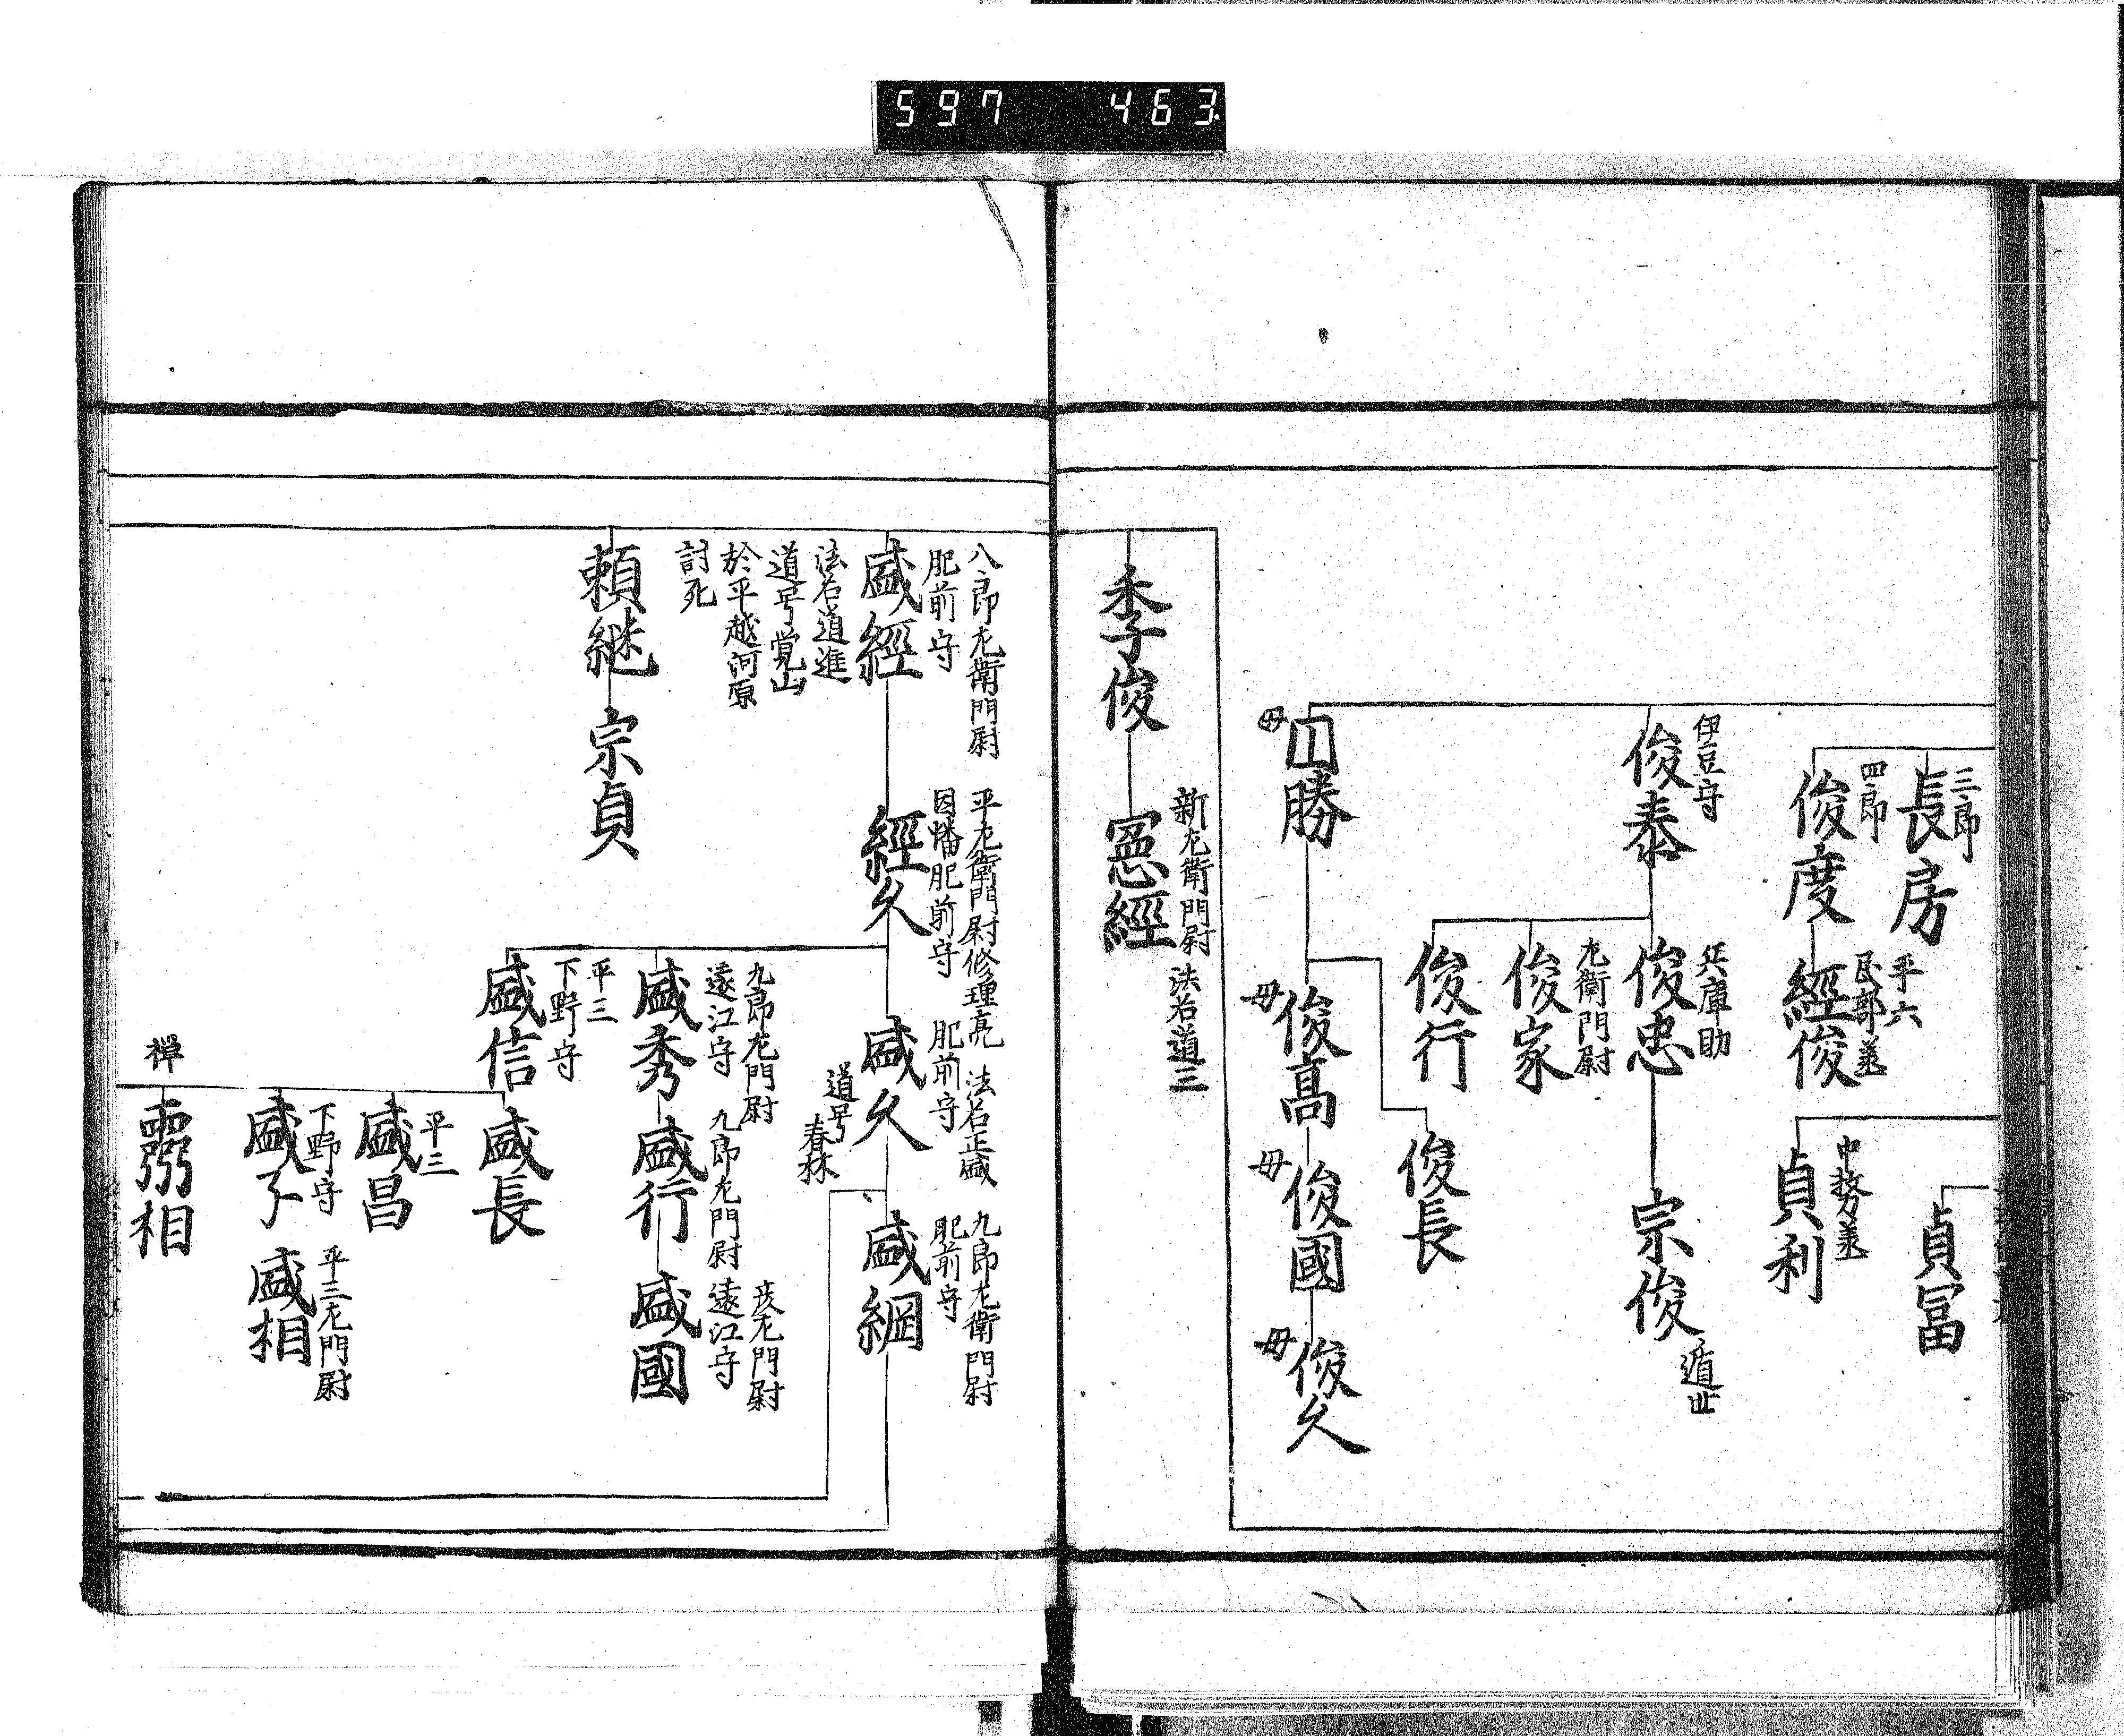 597 463
三郎
長房
四郎
俊度
平六
民部丞
經俊
貞冨
中務丞
貞利
伊豆守
俊泰
兵庫助
俊忠
宗俊
遁世
左衛門尉
俊家
俊行
母
勝
俊長
母
俊髙
母
俊國
母
俊久
季俊
新左衛門尉 法名道三
經
八郎左衛門尉
肥前守
盛經
法名道進
道号覚山
於平越河原
討死
平左衛門尉修理亮 法名正盛
因幡肥前守
經久
肥前守
盛久
道号
春林
九郎左衛門尉
肥前守
盛綱
頼継
宗貞
九郎左門尉
遠江守
盛秀
九郎左門尉
盛行
左門尉
遠江守
盛國
平三
下野守
盛信
盛長
平三
盛昌
下野守
盛
平三左門尉
盛相
禅
相